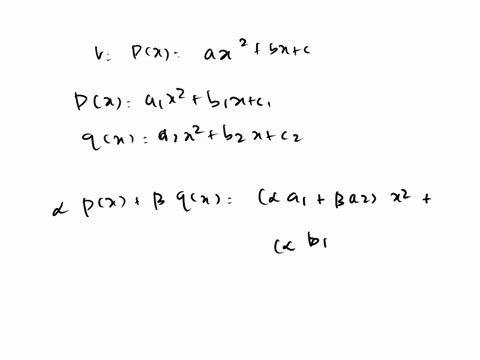 V: P(x): ax² + bx + c
P(x): a₁x² + b₁x + c₁
q(x): a₂x² + b₂x + c₂
α P(x) + β q(x): (α a₁ + β a₂) x² +
(α b₁